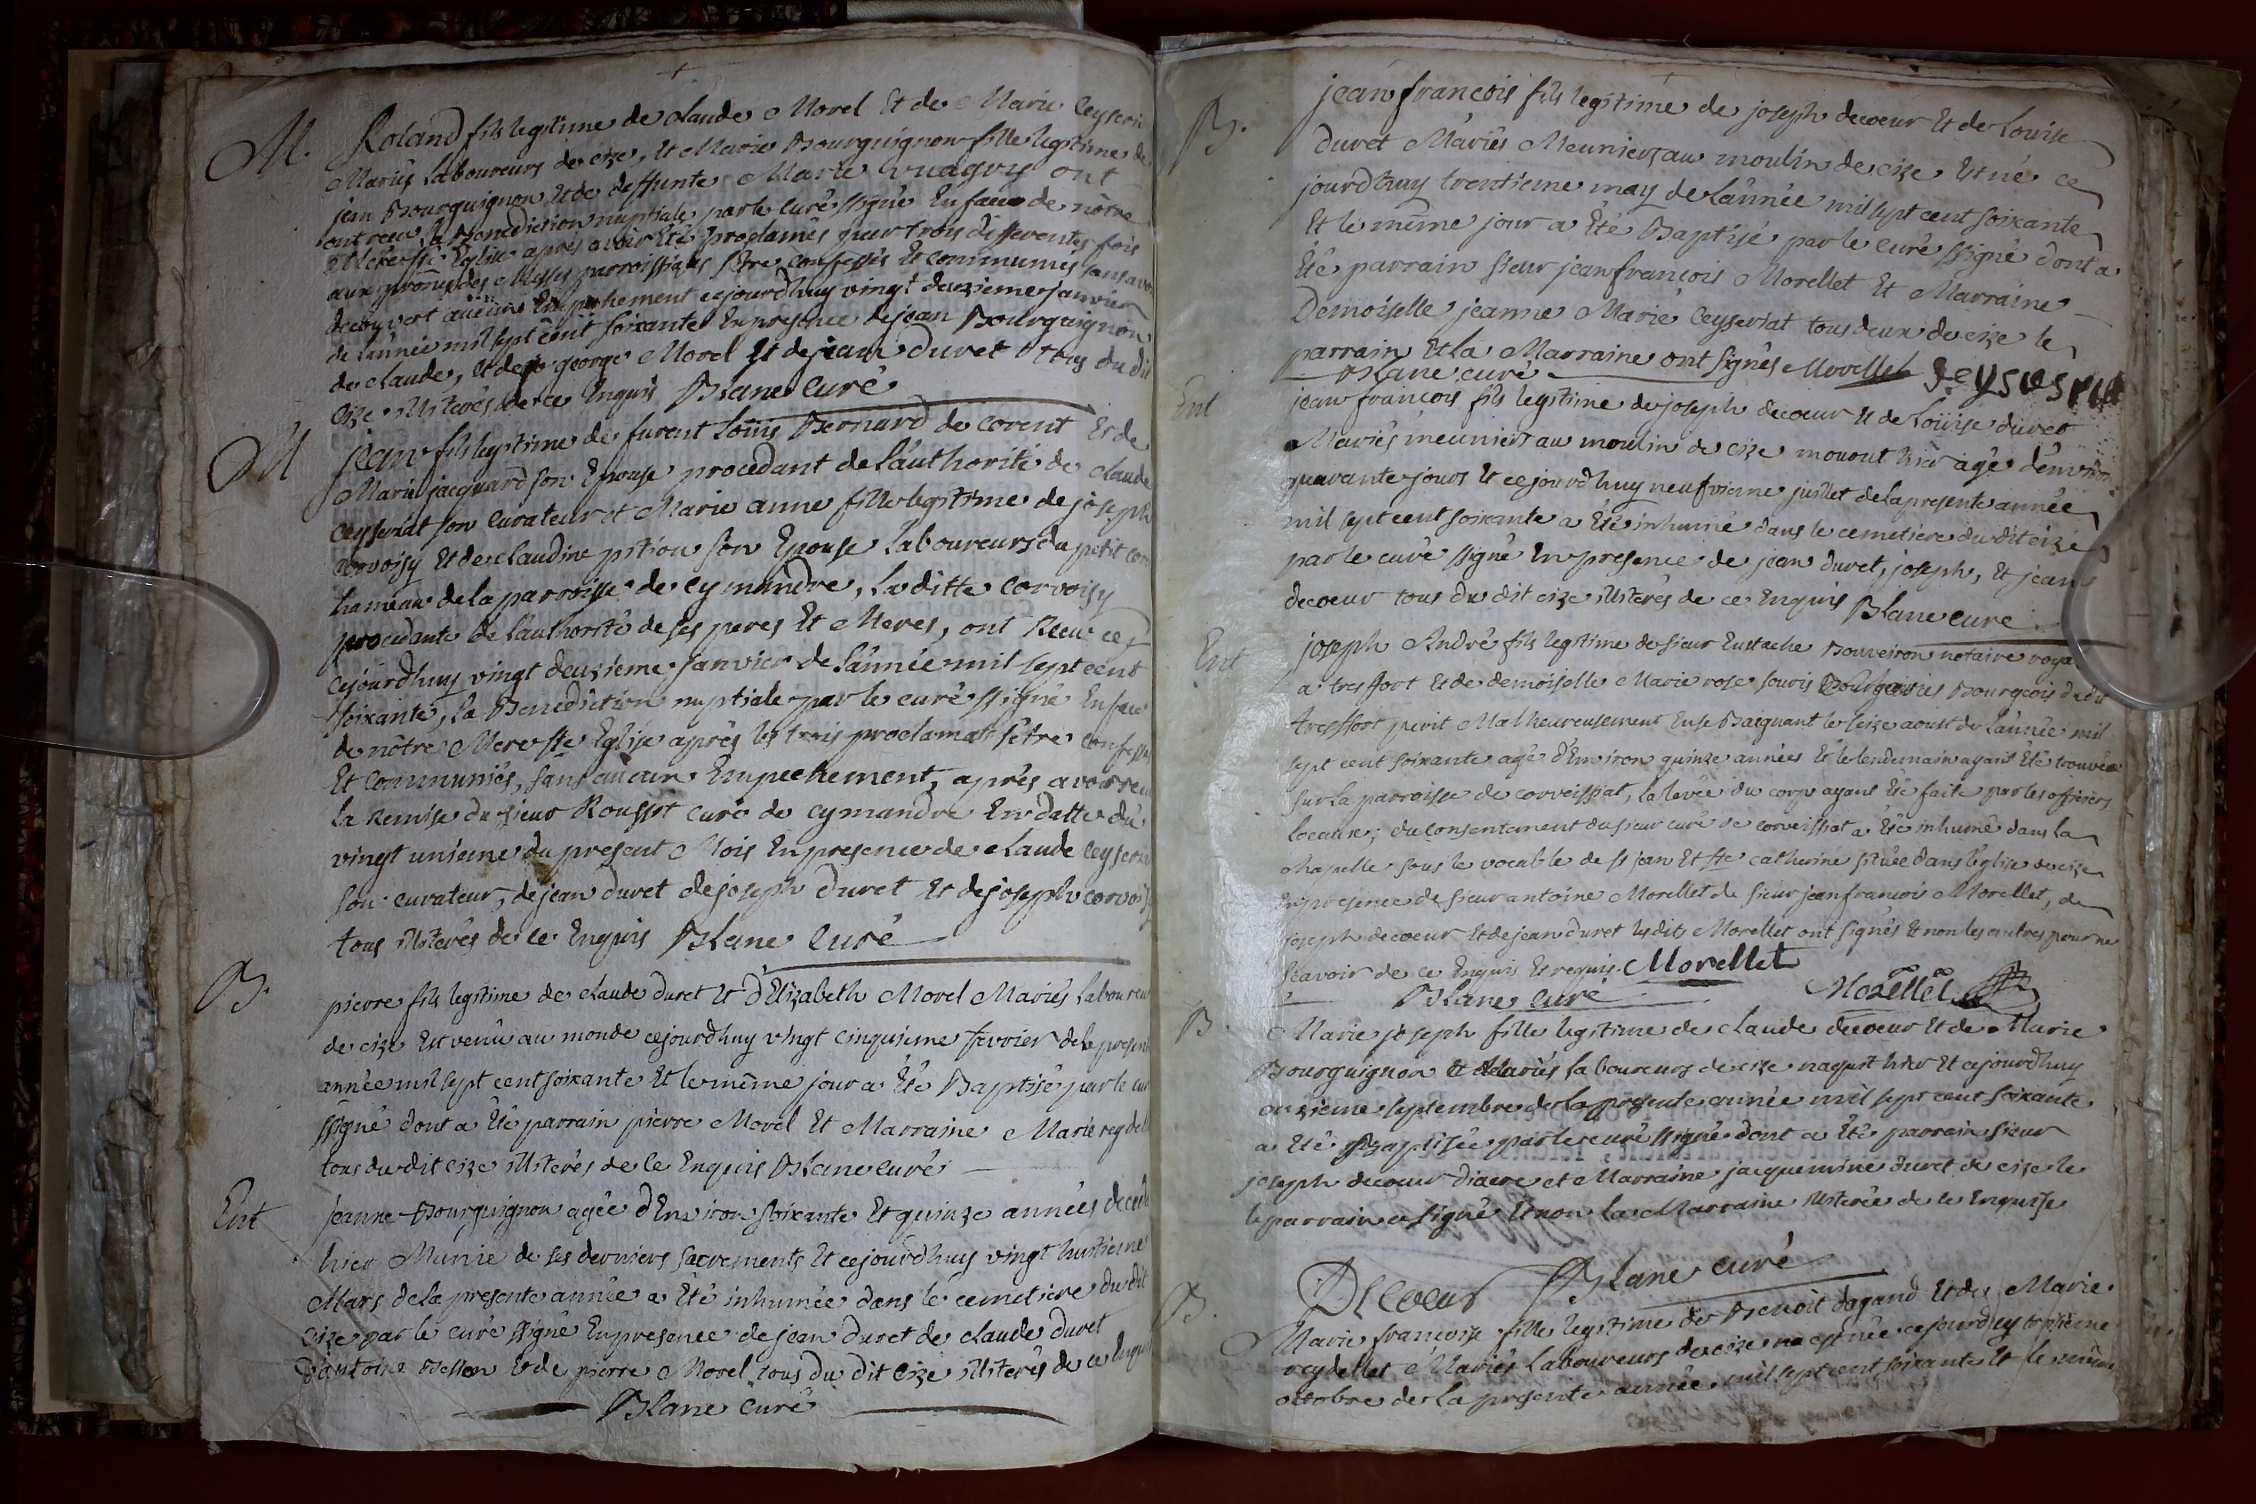 M. Roland fils legitime de claude Morel Et de Marie Ceyseria
Mariés laboureurs de cize, et Marie Bourguignon fille legitime de
jean Bourguignon Et de deffunte Marie vuagry ont
ont reçu la Benediction nuptiale par le curé ssigné En face de nôtre
Mere ste Eglise après avoir Eté proclamés par trois differentes fois
aux prônes des Messes parroissiales s'être confessés Et communiés sans avoir
decouvert aucuns Empechement cejourdhuy vingt deuxieme janvier
de l'année mil sept cent soixante En presence de jean Bourguignon
de claude, et de george Morel Et de jean duret tous du dit
Cize illiterés de ce Enquis Blanc Curé
M Jean fils legitime de furent Loüis Bernard de corent Et de
Marie jacquard son Epouse procedant de l'authorité de claude
ceyseriat son curateur et Marie anne fille legitime de joseph
corvoisy Et de claudine pition son Epouse Laboureurs du petit cor
hameau de la parroisse de cymandre, La ditte corvoisy
procedante de l'authorité de ses peres Et Meres, ont Receu ce
cejourdhuy vingt deuxieme janvier de l'année mil sept cent
soixante, la Benediction nuptiale par le curé ssigné En face
de nôtre Mere ste Eglise après les trois proclamats s'être confessés
Et communiés, sans aucun Empechement, après avoir reçu
la Remise du sieur Roussot curé de cymandre En datte du
vingt unieme du present Mois En presence de claude ceyseriat
son curateur, de jean duret de joseph duret Et de joseph corvoisy
tous illiterés de ce Enquis Blanc Curé
B. pierre fils legitime de claude duret Et d'Elizabeth Morel Mariés laboureu
de cize Est venû au monde cejourdhuy vingt cinquieme fevrier de la present
année mil sept cent soixante Et le même jour a Eté Baptisé par le curé
ssigné dont a Eté parrain pierre Morel Et Marraine Marie reydell
tous du dit cize illiterés de ce Enquis Blanc curé
Ent jeanne Bourguignon agée d'Environ soixante Et quinze années deceda
hier Munie de ses derniers sacrements Et cejourdhuy vingt huitieme
Mars de la presente année a Eté inhumée dans le cemetiere du dit
Cize par le curé ssigné En presence de jean duret de claude duret
d'antoine Besson Et de pierre Morel tous du dit Cize illiterés de ce Enquis
Blanc Curé
B. jean françois fils legitime de joseph decoeur Et de Louise
duret Mariés Meuniers au moulin de cize Est né ce
jourdhuy trentieme may de L'année mil sept cent soixante
Et le même jour a Eté Baptisé par le curé ssigné dont a
Eté parrain sieur jean françois Morellet Et Marraine
Demoiselle jeanne Marie Ceyseriat tous deux de cize le
parrain Et la Marraine ont signés Morellet J Ceyseriat
Blanc curé
Ent jean françois fils legitime de joseph decoeur Et de Loüise duret
Mariés meuniers au moulin de cize mourut hier agé d'environ
quarante jours Et cejourdhuy neufvieme juillet de la presente année
mil sept cent soixante a Eté inhumé dans le cemetiere du dit cize
par le curé ssigné En presence de jean duret, joseph, Et jean
decoeur tous du dit cize illiterés de ce Enquis Blanc curé
Ent joseph André fils legitime de sieur Eustache Bouveiron notaire roya
a tresffort Et de demoiselle Marie rose souris Bourgeois du dit
tresffort perit Malheureusement En se Baignant le seize aoust de L'année mil
sept cent soixante agé d'Environ quinze années Et le lendemain ayant Eté trouvé
sur la parroisse de corveissiat, la levée du corp ayant Eté faite par les officiers
locaux; du consentement du sieur curé de corveissiat a Eté inhumé dans la
chapelle sous le vocable de st jean Et ste catherine située dans l'église de cize
En presence de sieur antoine Morellet de sieur jean françois Morellet, de
joseph decoeur Et de jean duret les dits Morellet ont signés Et non les autres pour ne
sçavoir de ce Enquis Et requis. Morellet
Blanc curé Morellet
B. Marie joseph fille legitime de claude decoeur Et de Marie
Bourguignon Mariés laboureurs de cize naquit hier Et cejourdhuy
onzieme septembre de la presente année mil sept cent soixante
a Eté Baptisée par le curé ssigné dont a Eté parrain sieur
joseph decoeur Diacre et Marraine jacquemine duret de cize le
le parrain a signé Et non la Marraine illiterée de ce Enquise
Decoeur Blanc curé
B. Marie françoise fille legitime de Benoit dagand Et de Marie
reydellet Mariés Laboureurs de cize est née cejourdhuy troisieme
octobre de la presente année mil sept cent soixante Et le même